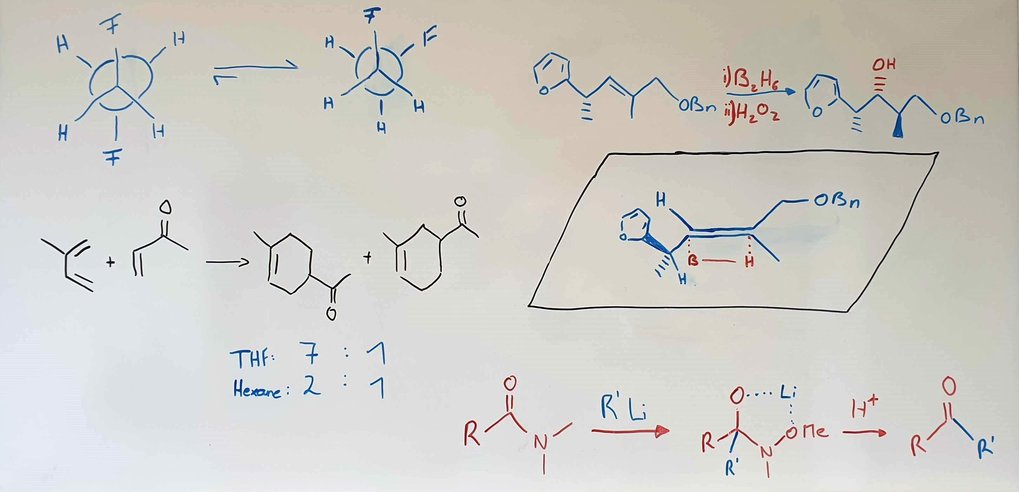 F
H H
H H
F
F
H F
H H
H
OBn
i) B₂H₆
ii) H₂O₂
O
OH
O
OBn
H
OBn
O
B H
H
O
+
O
+
O
THF: 7 : 1
Hexane: 2 : 1
O
R N
R' Li
O Li
R N OMe
R'
H⁺
O
R R'